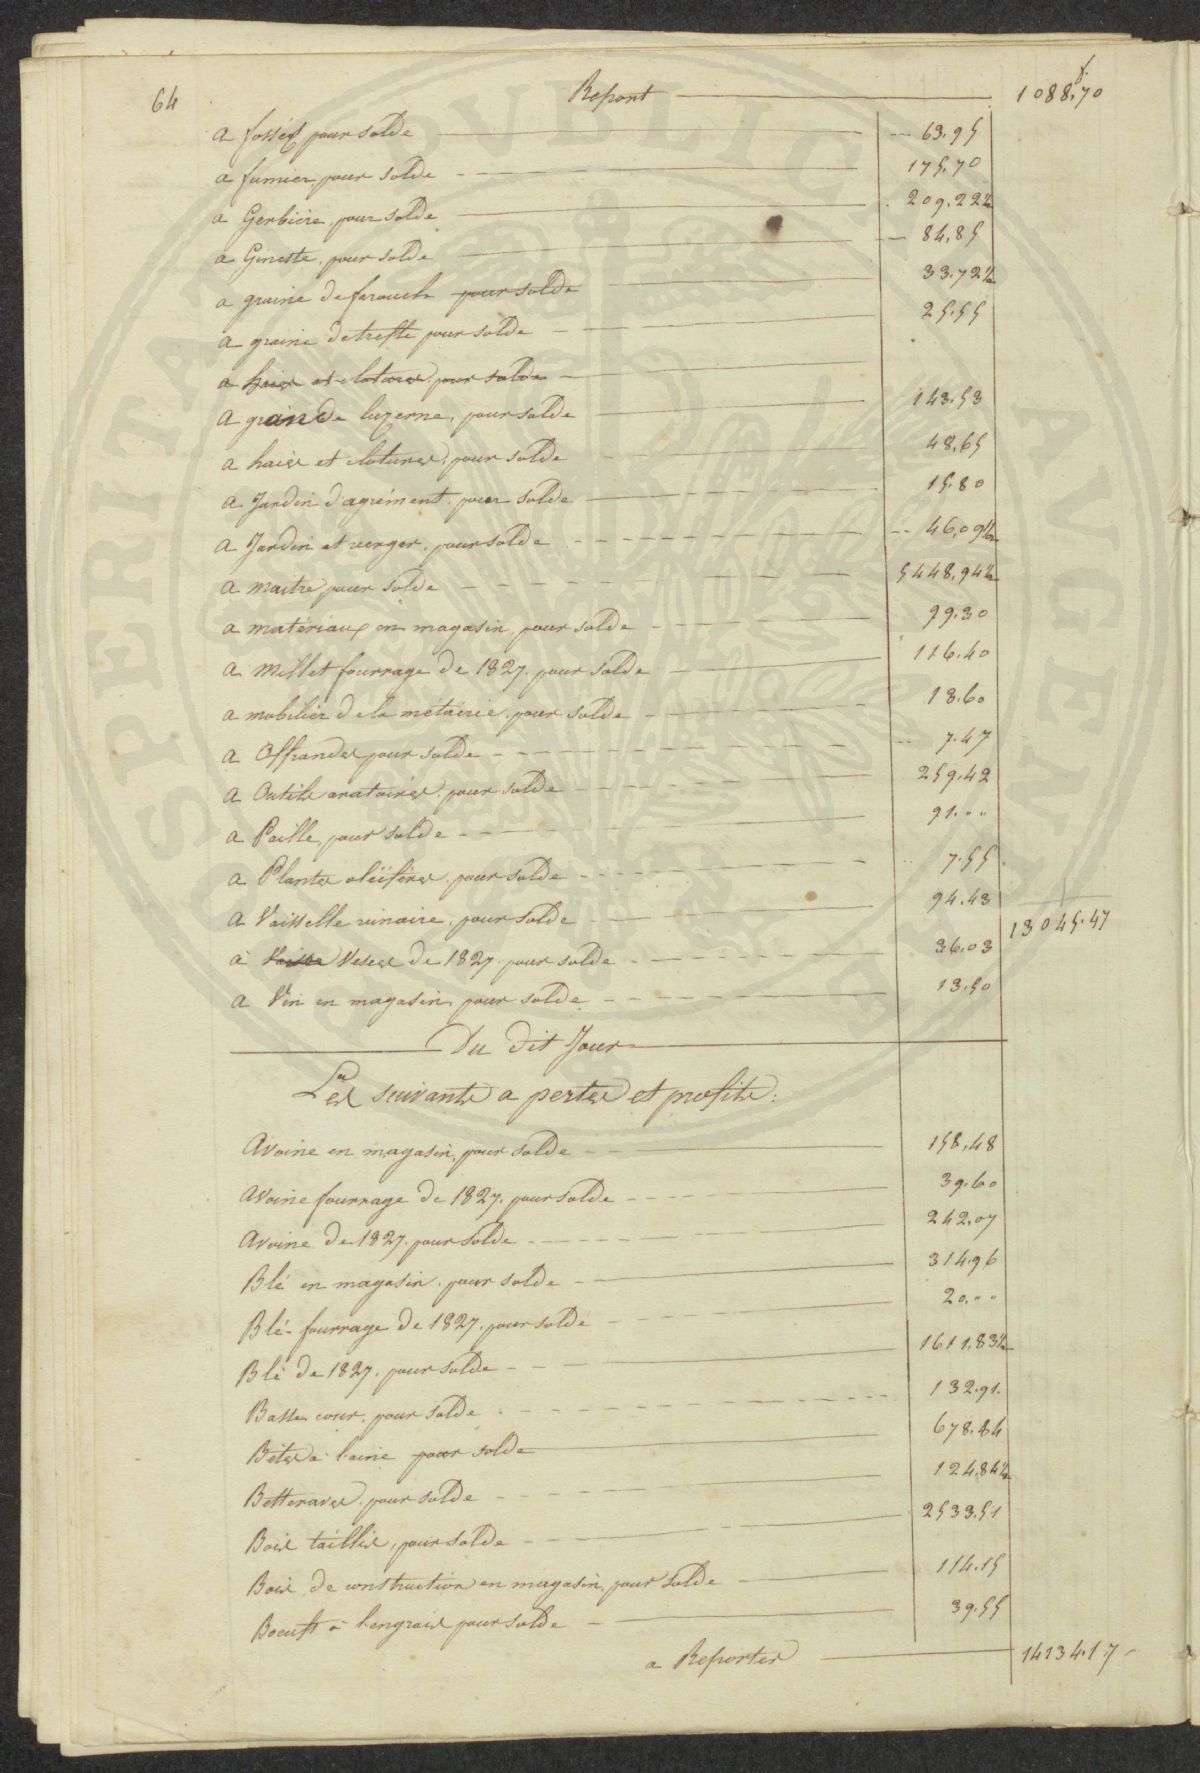 64 Report 1088,70 f.
a fossés pour solde 63,95
a fumier pour solde 175,70
a Gerbière pour solde 209,22½
a Gineste, pour solde 84,85
a graine de farouch pour solde 33,72½
a graine de treffle pour solde 25,55
a haies et clotures pour solde
a graine de luzerne, pour solde 143,53
a haies et clotures, pour solde 48,65
a Jardin d'agrément. pour solde 15,80
a Jardin et verger, pour solde 46,09½
a maitre pour solde 5448,94½
a matériaux en magasin, pour solde 99,30
a Millet fourrage de 1827. pour solde 116.40
a mobilier de la métairie, pour solde 18.60
a Offrandes pour solde 7.47
a Outils aratoires, pour solde 259.42
a Paille, pour solde 91. " "
a Plantes oléifères, pour solde 7.55
a Vaisselle vinaire, pour solde 94.43
13045.47
à Veses de 1827. pour solde 36.03
a Vin en magasin, pour solde 13.50
Du dit Jour
Les suivants a pertes et profits:
Avoine en magasin, pour solde 158,48
Avoine fourrage de 1827. pour solde 39.60
Avoine de 1827. pour solde 242,07
Blé en magasin. pour solde 314.96
Blé-fourrage de 1827. pour solde 20. " "
Blé de 1827. pour solde 1611,83½
Basse cour. pour solde 132.91.
Betes a laine pour solde 678.84
Betteraves. pour solde 124,84½
Bois taillis, pour solde 2533,51
Bois de construction en magasin, pour solde 114.15
Boeufs à l'engrais pour solde 39.55
a Reporter 14134.17